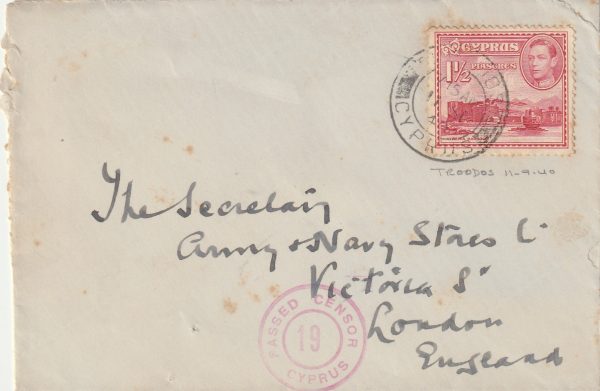 CYPRUS
1½ PIASTRES
CYPRUS
TROODOS 11-9-40
The Secretary
Army & Navy Stores Ld
Victoria St
London
England
PASSED CENSOR
19
CYPRUS